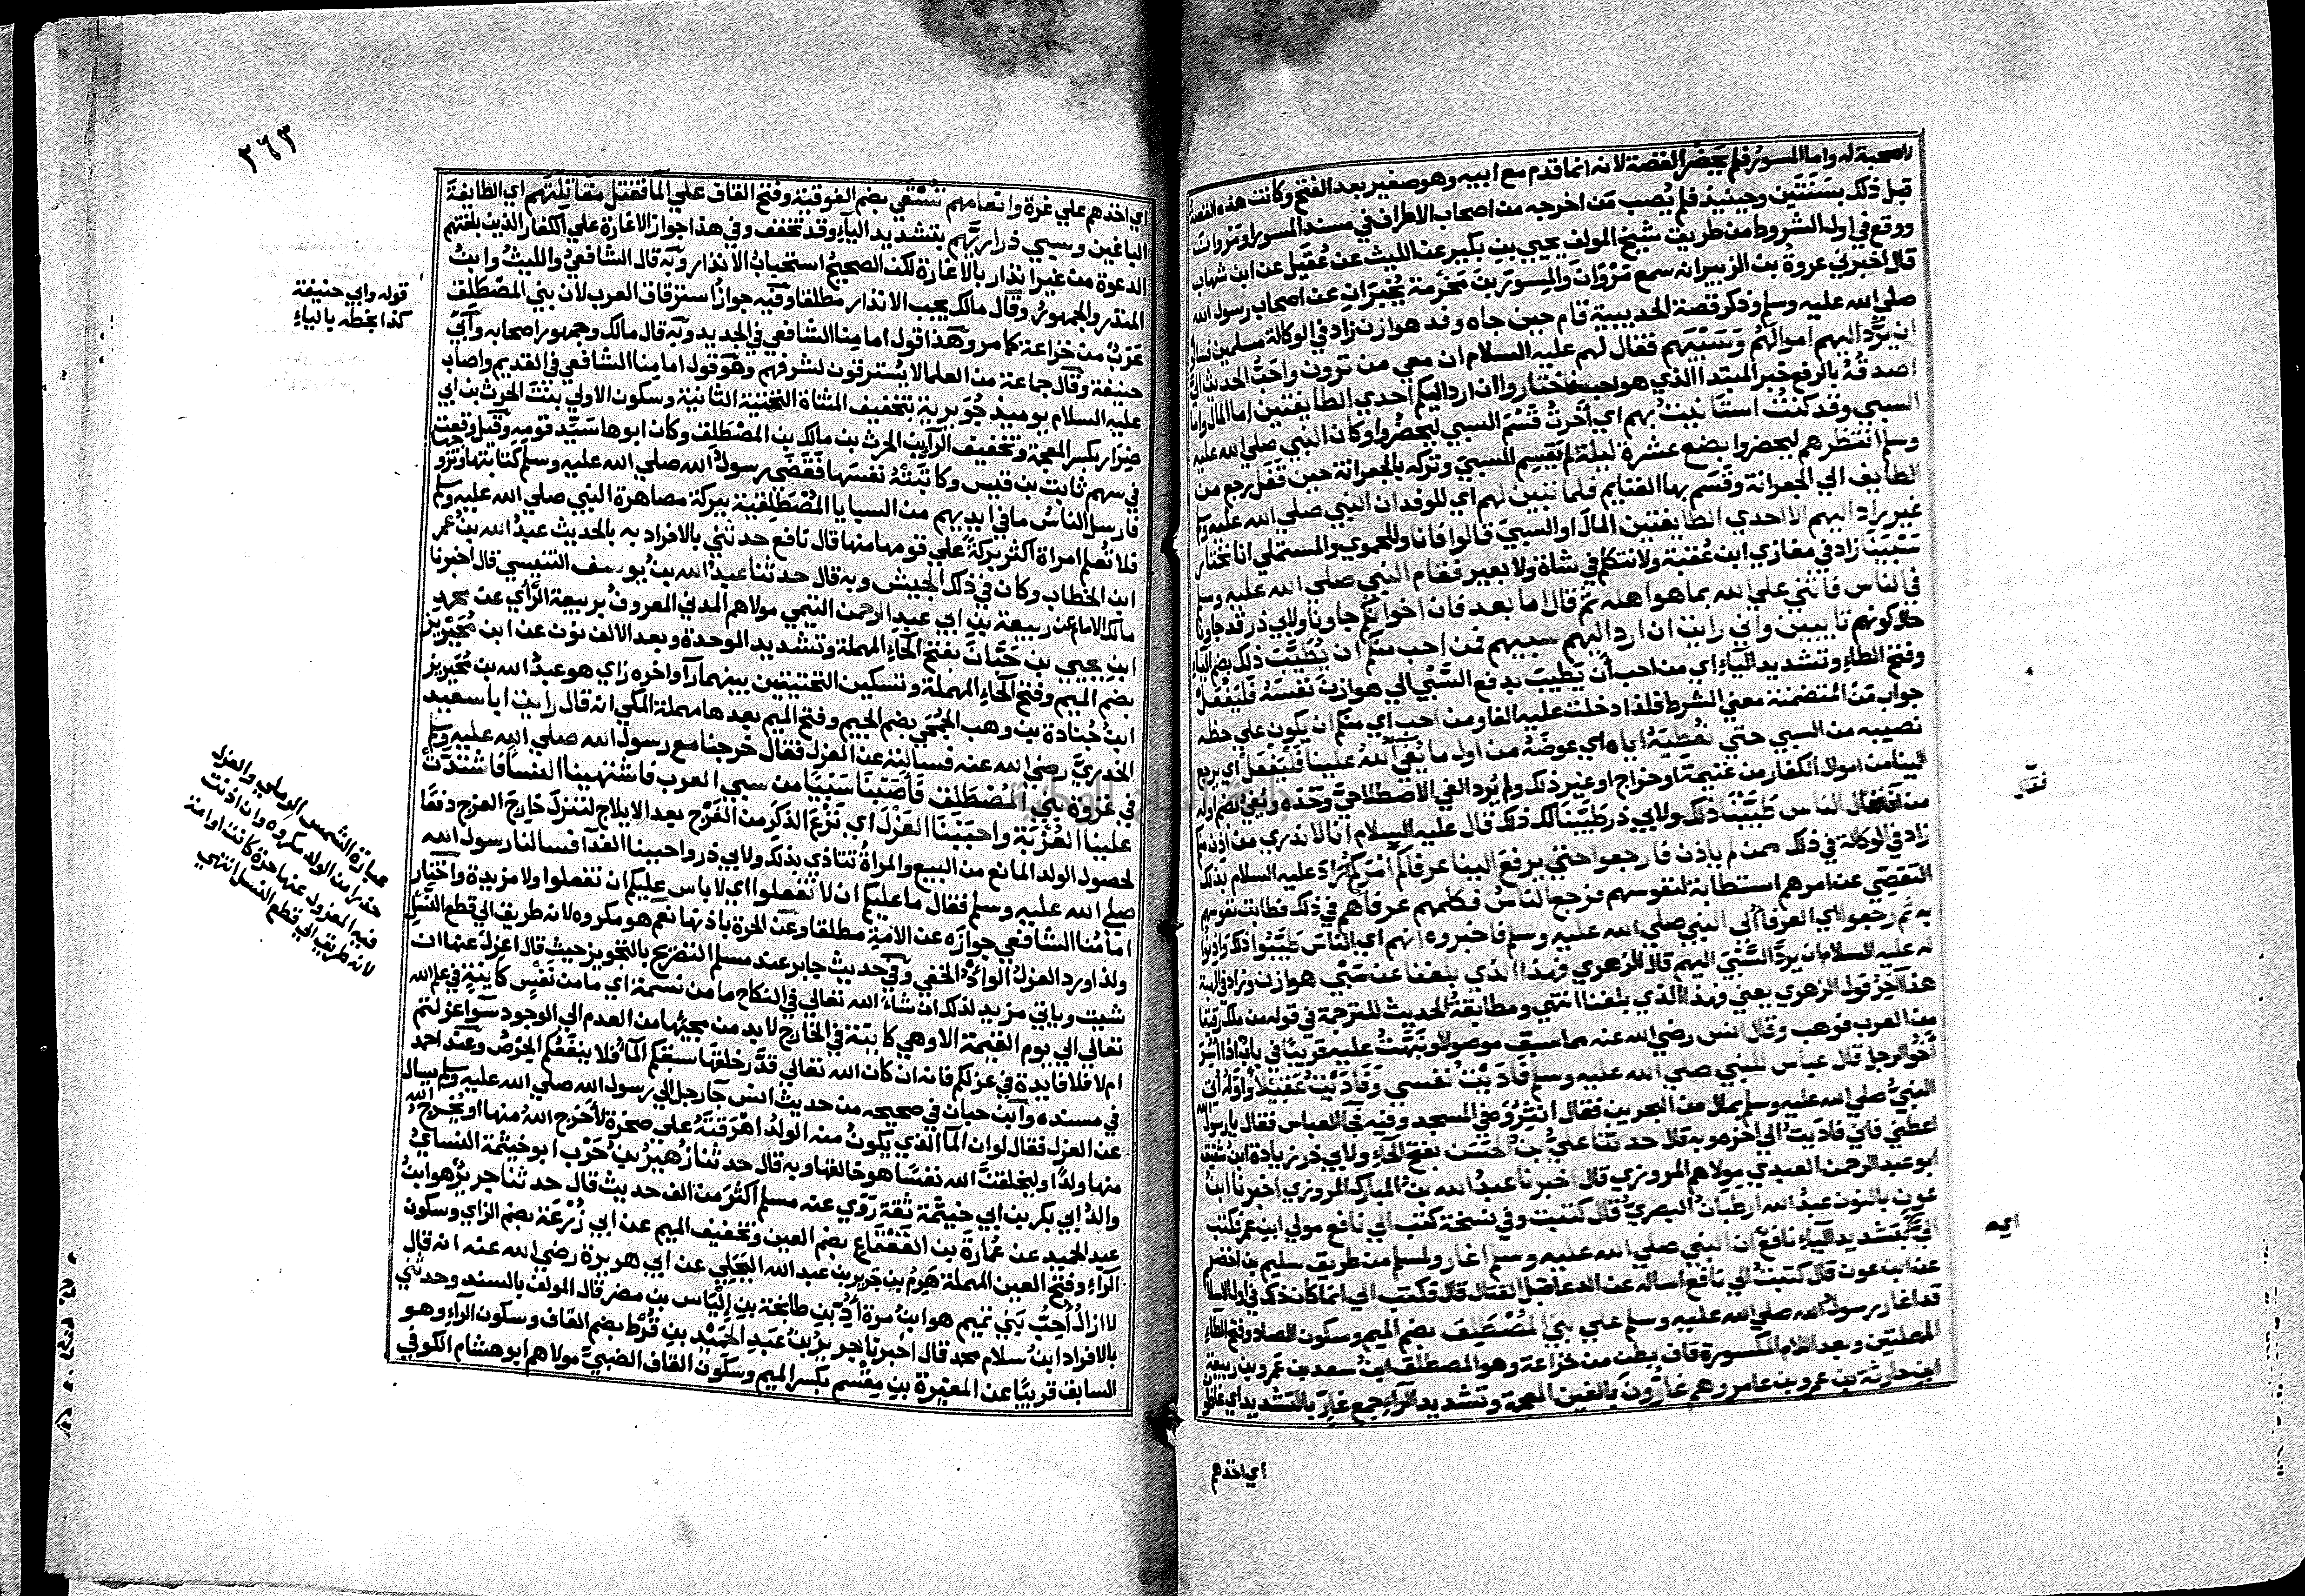 لا صحبة له واما المسور فلم يحضر القصة لانه انما قدم مع ابيه وهو صغير بعد الفتح وكانت هذه القصة
قبل ذلك بسنتين وحينيذ فلم يُصب من اخرجه من اصحاب الاطراف في مسند المسور او مروان
ووقع في اول الشروط من طريق شيخ المولف يحيى بن بكير عن الليث عن عُقَيل عن ابن شهاب
قال اخبرني عروة بن الزبير انه سمع مَرْوَان والمِسور بن مَخْرَمة يُخبران عن اصحاب رسول الله
صلي الله عليه وسلم وذكر قصة الحديبية قام حين جاه وفد هوازن زاد في الوكالة مسلمين فسالوه
ان يرُدَّ اليهم اموالَهُم وسَبْيَهم فقال لهم عليه السلام ان معي من ترون واحَبُّ الحديث اليَّ
اصدقُهُ بالرفع خبر المبتدا الذي هو احب فاختاروا ان ارد اليكم احدي الطايفتين اما المال واما
السبي وقد كنتُ استانيتُ بهم اي اخّرتُ قَسْمَ السبي ليحضُروا وكان النبي صلي الله عليه
وسلم انتظرهم ليحضروا بضع عشرة ليلة لم يَقسِم السبيَ وتركه بالجعرانة حين قفل رجع من
الطايف الي الجعرانة وقسَم بها الغنايم فلما تبين لهم اي للوفد ان النبي صلي الله عليه وسلم
غير راد اليهم الا احدي الطايفتين المالَ او السبيَ قالوا فانا وللحموي والمستملي انا نختار
سَبْيَنَا زاد في مغازي ابن عُقبة ولا نتكلم في شاة ولا بعير فقام النبي صلي الله عليه وسلم
في الناس فاثني علي الله بما هو اهله ثم قال اما بعد فان اخوانكم جاونا ولابي ذر قد جاونا
حال كونهم تايبين واني رايت ان ارد اليهم سبيهم فمن احب منكم ان يُطَيِّبَ ذلك بضم الياء
وفتح الطاء وتشديد الياء اي من احب أن يَطِيبَ بدفع السَّبْي الي هوازن نفسَهُ فَليَفعل
جواب مَن المتضمنة معني الشرط فلذا دخلت عليه الفا ومن احب اي منكم ان يكون علي حظه
نصيبه من السبي حتي نُعْطيَهُ اياه اي عوضَه من اول ما يُفِيءُ اللهُ علينا فَلْيَفْعَل اي يرجع
الينا من اموال الكفار من غنيمة او خراج او غير ذلك ولم يُرد الفي الاصطلاحيَّ وَحْدَه ويُفيء بضم اوله
من افاء فقال الناس طَيَّبْنَا ذلك ولابي ذر طَيَّبْنَا لك ذلك قال عليه السلام انا لا ندري من أذن منكم
زاد في الوكالة في ذلك ممن لم ياذن فارجعوا حتي يرفعَ الينا عرفاوكُم أمرَكُم اراد عليه السلام بذلك
التقصّي عن امرهم استطابة لنفوسهم فرجع الناسُ فكلمهم عرفاهم في ذلك فطابت نفوسهم
به ثم رجعوا اي العرفا الي النبي صلي الله عليه وسلم فاخبروه انهم اي الناسَ طَيَّبُوا ذلك واذنوا
له عليه السلام ان يردَّ السَّبْيَ اليهم قال الزهري فهذا الذي بلغنا عن سَبْي هوازن وزاد في الهبة
هذا آخِرُ قول الزهري يعني فهذا الذي بلغنا انتهي ومطابقةُ الحديث للترجمة في قوله من ملك رقيقا
من العرب فوهب وقال انس رضي الله عنه مما سبق موصولا ونَبَّهْتُ عليه قريبًا في باب اذا اُسِر
اخو الرجل قال عباس للنبي صلي الله عليه وسلم فَادَيْتُ نفسي وَفَادَيْتُ عَقيلا واوله اُتي
النبيُّ صلي الله عليه وسلم بمال من البحرين فقال انثُرُوه في المسجد وفيه فجاء العباس فقال يا رسول الله
اعطني فاني فاديتُ الي اخره وبه قال حدثنا عليُّ بن الحَسَن بفتح الحاء ولابي ذر زيادة ابن شقيق
ابو عبد الرحمن العبدي مولاهم المروزي قال اخبرنا عبدُ الله بنُ المبارك المروزي اخبرنا ابنُ
عون بالنون عبدُ الله ارطبانُ البصريُّ قال كتبت وفي نسخة كتب الي نافع مولي ابن عمر فكتب
اليَّ بتشديد الياء نافعٌ ان النبي صلي الله عليه وسلم اغار ولمسلم من طريق سليم بن اخضر
عن ابن عون قال كتبتُ الي نافع اساله عن الدعا قبل القتال قال فكتب الي انما كان ذلك في اول الاسلام
قد اغار رسول الله صلي الله عليه وسلم علي بني المُصْطَلِق بضم الميم وسكون الصاد وفتح الطاء
المهملتين وبعد اللام المكسورة قاف بطن من خزاعة وهو المصطلق ابنُ سعد بن عمرو بن ربيعة
ابن حارثة بن عمرو بن عامر وهم غارّونَ بالغين المعجمة وتشديد الراء جمع غارّ بالتشديد اي غافلون
اي اخذهم
٣٦٣
اي اخذهم علي غرة وانعامهم تُسْقَي بضم الفوقية وفتح القاف علي الما فقتل مُقَاتِلَتَهم اي الطايفةَ
الباغين وسبي ذراريَّهم بتشديد الياء وقد تخفف وفي هذا جواز الاغارة علي الكفار الذين بلغتهم
الدعوة من غير انذار بالاغارة لكن الصحيحُ استحبابُ الانذار وبه قال الشافعيُّ والليثُ وابنُ
المنذر والجمهورُ وقال مالك يجب الانذار مطلقا وفيه جوازُ استرقاق العرب لان بني المصْطَلق
عَرَبٌ من خزاعة كما مر وهذا قول امامنا الشافعي في الجديد وبه قال مالك وجمهور اصحابه وأبي
حنيفة وقال جماعة من العلما لا يُسترقون لشرفهم وهو قول امامنا الشافعي في القديم واصاب
عليه السلام يوميذ جُوَيرية بتخفيف المثناة التحتية الثانية وسكون الاولي بنتَ الحرث بن ابي
ضِرَار بكسر المعجمة وتخفيف الراء بن الحرث بن مالك بن المصْطَلِق وكان ابوها سَيّد قومه وقيل وقعت
في سهم ثابت بن قيس وكاتَبَتْهُ نفسَها فقَضَى رسولُ الله صلي الله عليه وسلم كتابتها وتزوجها
فارسل الناسُ ما في ايديهم من السبايا المُصْطَلِقية ببركة مصاهرة النبي صلي الله عليه وسلم
فلا تُعلم امراة اكثر بركةً علي قومها منها قال نافع حدثني بالافراد به بالحديث عبدُ الله بنُ عمر
ابن الخطاب وكان في ذلك الجيش وبه قال حدثنا عبدُ الله بنُ يُوسف التنيسي قال اخبرنا
مالك الامام عن ربيعة بن ابي عبد الرحمن التيمي مولاهم المدني المعروفُ بربيعة الرَّأي عن محمد
ابنِ يحيي بن حَبَّانَ بفتح الحاء المهملة وتشديد الموحدة وبعد الالف نون عن ابن مُحَيْريز
بضم الميم وفتح الحاء المهملة وتسكين التحتيتين بينهما را واخره زاي هو عبدُ الله بن مُحَيريز
ابنُ جُنادة بن وهب الجُمَحي بضم الجيم وفتح الميم بعدها مهملة المكي انه قال رايت ابا سعيد
الخدريَّ رضي الله عنه فسالتُه عن العزل فقال خرجنا مع رسول الله صلي الله عليه وسلم
في غزوة بني المُصْطَلَق فَأَصَبْنَا سَبْيًا من سبي العرب فاشتهينا النسا فاشْتَدَّتْ
علينا العُزْبَة واحبَبَنَا العَزْلَ اي نَزْعَ الذكر من الفَرْج بعد الايلاج لتنزل خارجَ الفرج دفعًا
لحصول الولد المانع من البيع والمراةُ تتاذي بذلك ولابي ذر واحببنا الفدآ فسالنا رسول الله
صلي الله عليه وسلم فقال ما عليكم ان لا تفعلوا اي لا باس عليكم ان تفعلوا ولا مزيدة واختار
امامُنا الشافعي جوازَه عن الامة مطلقا وعن الحرة باذنها نعم هو مكروه لانه طريق الي قطع النَّسْل
ولذا ورد العزلُ الوأدُ الخفي وفي حديث جابر عند مسلم التصريح بالتجويز حيث قال اعزل عنها ان
شيت وياتي مزيد لذلك ان شاءَ الله تعالي في النكاح ما من نَسَمَة اي ما من نَفْسٍ كاينةٍ في علم الله
تعالي الي يوم القيمة الا وهي كاينة في الخارج لا بد من مجيئها من العدم الي الوجود سوآ عزلتم
ام لا فلا فايدة في عزلكم فانه ان كان الله تعالي قدَّر خلقَها سبقكم المآ فلا ينفعُكم الحِرْصُ وعند احمد
في مسنده وابن حبان في صحيحه من حديث انس جآ رجل الي رسول الله صلي الله عليه وسلم يسال
عن العزل فقال لو ان المآ الذي يكونُ منه الولدُ اهْرَقْتَهُ علي صخرة لأخرج اللهُ منها او يُخرج الله
منها ولدًا وليَخلقنَّ الله نفسًا هو خالقها وبه قال حدثنا زُهَيرُ بن حَرْب ابو خيثمة النسايُ
والدُ ابي بكر بن ابي خيثمة ثقة رَوَي عنه مسلم اكثرَ من الف حديث قال حدثنا جريرٌ هو ابنُ
عبد الحميد عن عُمارة بن القَعْقَاع بضم العين وتخفيف الميم عن ابي زُرْعَة بضم الزاي وسكون
الراء وفتح العين المهملة هَرِم بن جَرير بن عبد الله البَجَلي عن ابي هريرة رضي الله عنه انه قال
لا ازالُ أُحِبُّ بَني تميم هو ابنُ مُرة بنِ أُدّ بن طابخة بن إلياس بن مضر قال المولف بالسند وحدثني
بالافراد ابنُ سلام محمد قال اخبرنا جريرُ بنُ عَبد الحَمِيْد بن قُرْط بضم القاف وسكون الراء وهو
السابق قريبًا عن المغيرة بن مِقْسَم بكسر الميم وسكون القاف الضبيّ مولاهم ابو هشام الكوفي
قوله وابي حنيفة
كذا بخطه بالياء
عبارة الشمس الرملي والعزل
حذرا من الولد مكروه وان اذنت
فيه المعزول عنها حرة كانت او امة
لانه طريق الي قطع النسل انتهي